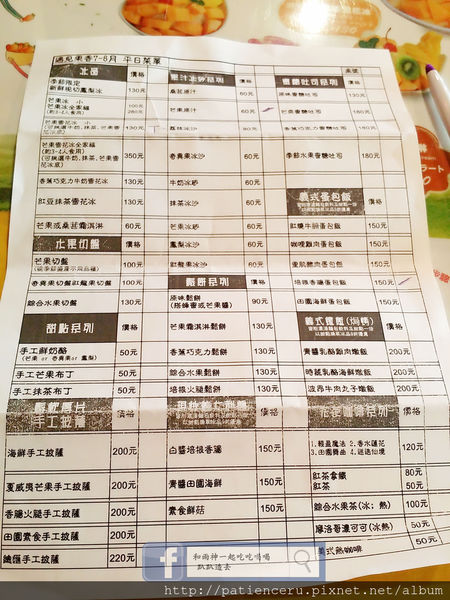 遇見果香7-8月 平日菜單
冰品 價格
季節限定
新鮮現切鳳梨冰 130元
芒果冰 小 100元
芒果冰全家福 280元
(約3-4人食用)
芒果雪花冰 小
(可挑選牛奶,抹茶,芒果雪花冰底) 130元
芒果雪花冰全家福
(約3-4人食用)
(可挑選牛奶,抹茶,芒果雪花冰底) 350元
香蕉巧克力牛奶雪花冰 130元
紅豆抹茶雪花冰 130元
芒果或桑葚霜淇淋 60元
水果切盤 價格
芒果切盤 100元
百香果切盤紅龍果切盤 100元
綜合水果切盤 130元
甜點系列 價格
手工鮮奶酪 50元
手工芒果布丁 50元
手工抹茶布丁 50元
手工披薩 價格
海鮮手工披薩 200元
夏威夷芒果手工披薩 200元
香腸火腿手工披薩 200元
田園素食手工披薩 200元
鐵匯手工披薩 220元
果汁冰砂系列 價格
桑葚原汁 60元
芒果原汁 60元
荔枝冰沙 80元
百香果冰沙 60元
牛奶冰砂 60元
抹茶冰沙 60元
芒果冰砂 60元
鳳梨冰沙 60元
紅龍果冰沙 60元
鬆餅系列 價格
原味鬆餅 130元
(搭蜂蜜或芒果醬)
芒果霜淇淋鬆餅 130元
香蕉巧克力鬆餅 130元
綜合水果鬆餅 130元
培根火腿鬆餅 130元
價格
白醬培根香腸 150元
青醬田園海鮮 150元
素食鮮菇 150元
蜜糖吐司系列 價格 桌號
原味蜜糖吐司 130元
芒果蜜糖吐司 180元
香蕉巧克力蜜糖吐司 180元
季節水果蜜糖吐司 180元
義式蛋包飯 價格
紅燒牛腩蛋包飯 150元
咖哩雞肉蛋包飯 150元
蜜肌豬肉蛋包飯 150元
培根香腸蛋包飯 150元
田園海鮮蛋包飯 150元
義式燉飯(焗烤) 價格
青醬乳酪雞肉燉飯 200元
時蔬乳酪海鮮燉飯 200元
波昂牛肉丸子燉飯 200元
花茶咖啡系列 價格
1.輕盈魔法 2.香水蓮花
3.田園舞曲 4.迷迭仙境 120元
紅茶拿鐵 80元
紅茶 50元
綜合水果茶(冰;熱) 100元
摩洛哥濃可可(冰熱) 50元
美式熱咖啡 50元
和雨神一起吃吃喝喝
趴趴造去
http://patienceru.pixnet.net/album